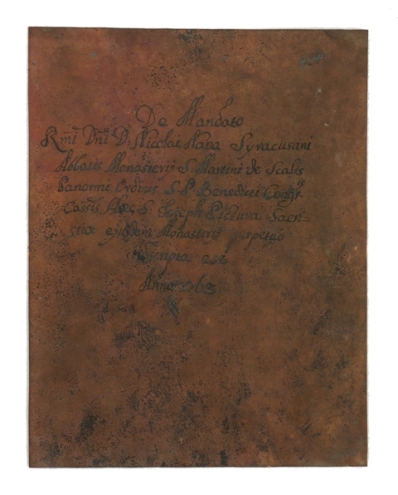 De Mandato
R.mi Dni D. Nicolai Syracusani
Abbatis Monasterii S. Martini de Scalis
Panormi Ordinis S. P. Benedicti Cong.
Cassis. Haec S. Joseph Pictura Sacri-
stiae ejusdem Monasterii perpetuo
est
Anno